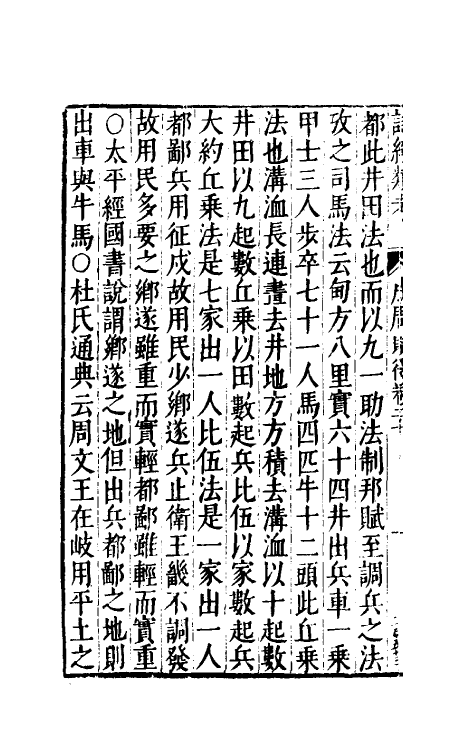 詩經類考
都此井田法也而以九一助法制邦賦至調兵之法
攷之司馬法云甸方八里實六十四井出兵車一乗
甲士三人步卒七十一人馬四匹牛十二頭此丘乗
法也溝洫長連晝去井地方方積去溝洫以十起數
井田以九起數丘乗以田數起兵比伍以家數起兵
大約丘乗法是七家出一人比伍法是一家出一人
都鄙兵用征戍故用民少鄉遂兵止衛王畿不調發
故用民多要之鄉遂雖重而實輕都鄙雖輕而實重
○太平經國書說謂鄉遂之地但出兵都鄙之地則
出車與牛馬○杜氏通典云周文王在岐用平土之